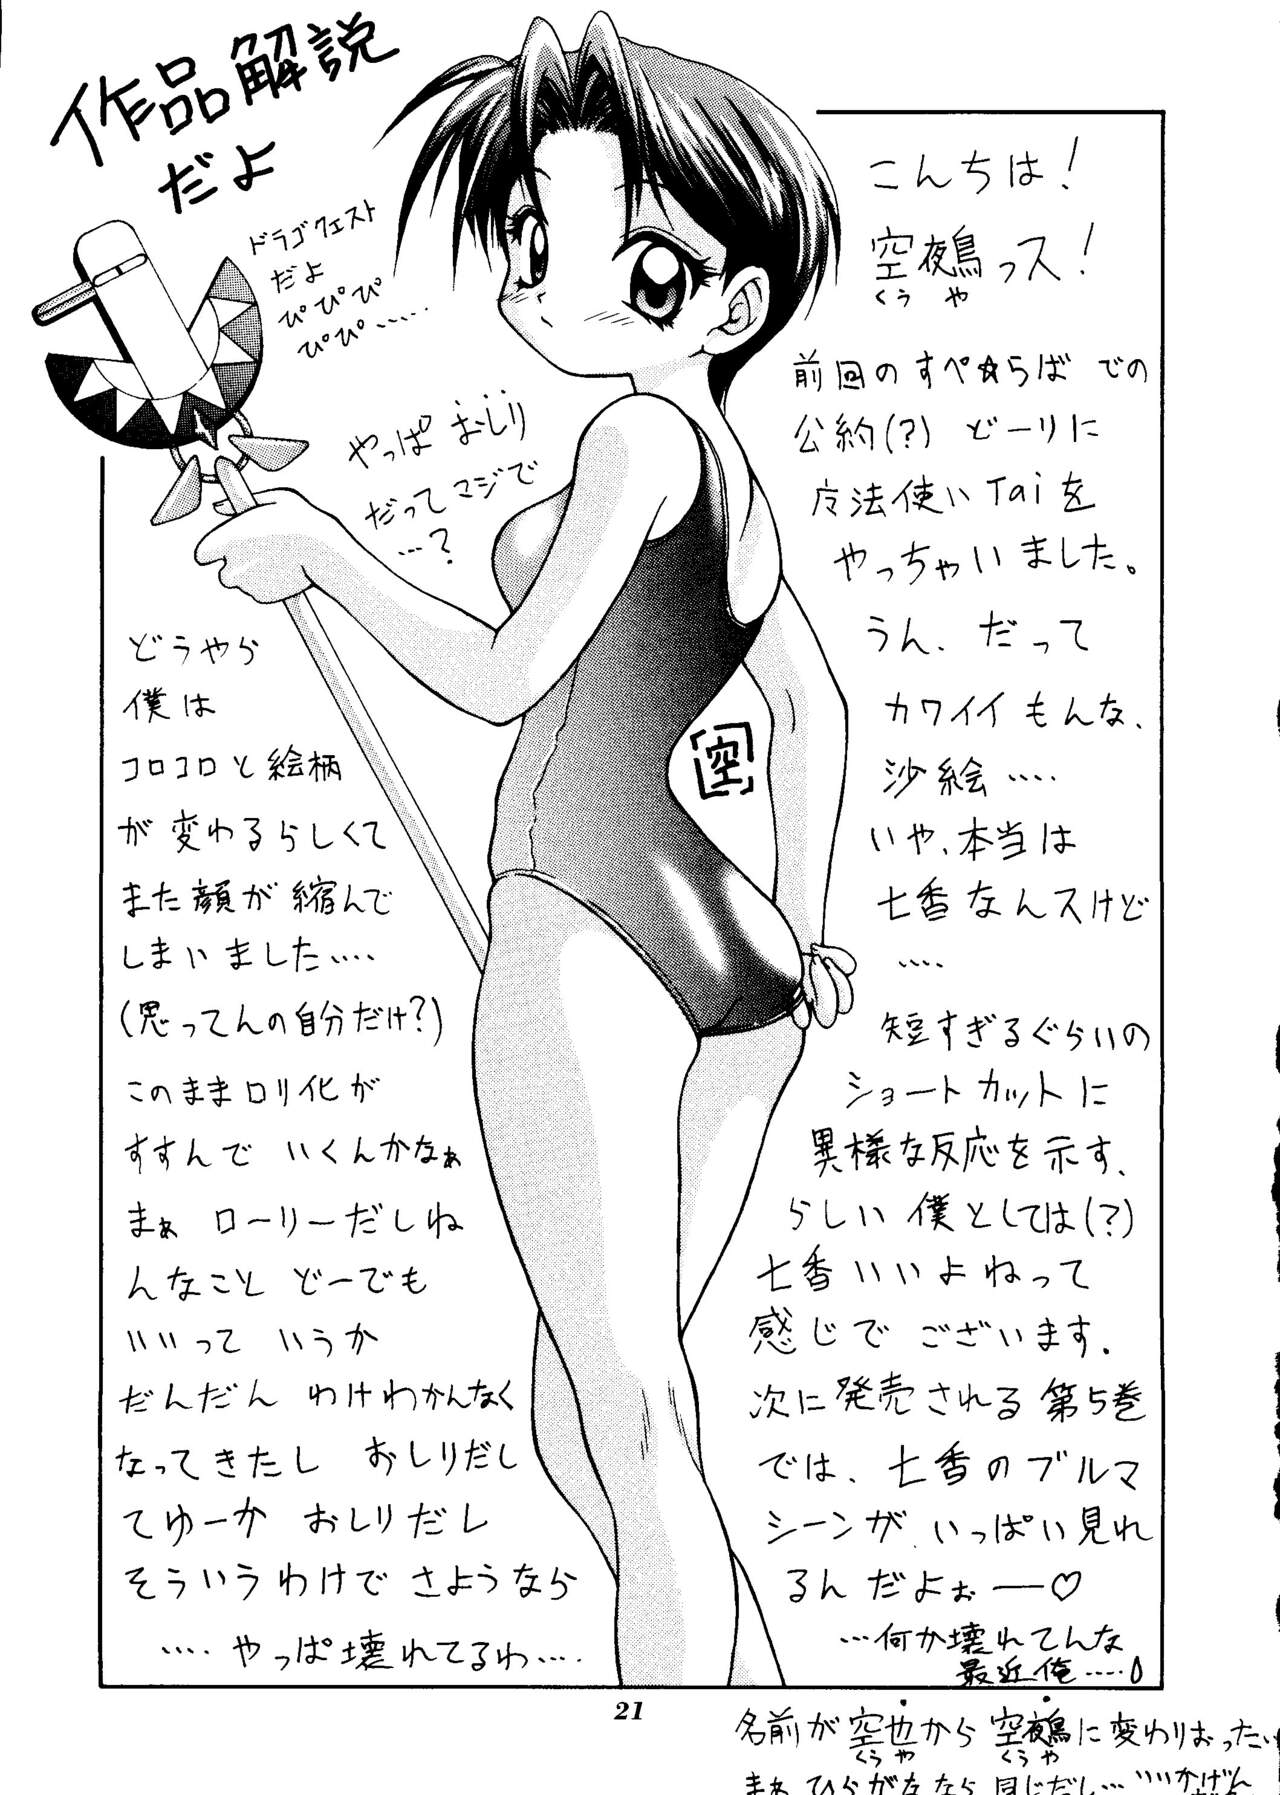 作品解説
だよ
ドラゴクエスト
だよ
ぴぴぴ
ぴぴ……
やっぱ おしり
だって マジで
…?
こんちは!
空鵺っス!
くうや
前回のすぺ☆らばでの
公約(?)どーりに
魔法使いTaiを
やっちゃいました。
うん、だって
カワイイもんな、
沙絵……
いや、本当は
七香なんスけど
……
短すぎるぐらいの
ショートカットに
異様な反応を示す、
らしい僕としては(?)
七香いいよねって
感じでございます.
次に発売される第5巻
では、七香のブルマ
シーンが、いっぱい見れ
るんだよぉー♡
…何か壊れてんな
最近俺……
空
どうやら
僕は
コロコロと絵柄
が変わるらしくて
また顔が縮んで
しまいました……
(思ってんの自分だけ?)
このままロリ化が
すすんでいくんかなぁ
まぁ ローリーだしね
んなこと どーでも
いいって いうか
だんだん わけわかんなく
なってきたし おしりだし
てゆーか おしりだし
そういうわけで さようなら
…. やっぱ壊れてるわ….
21
名前が空也から空鵺に変わりおったい
くうや くうや
まぁひらがななら同じだし… いいかげん